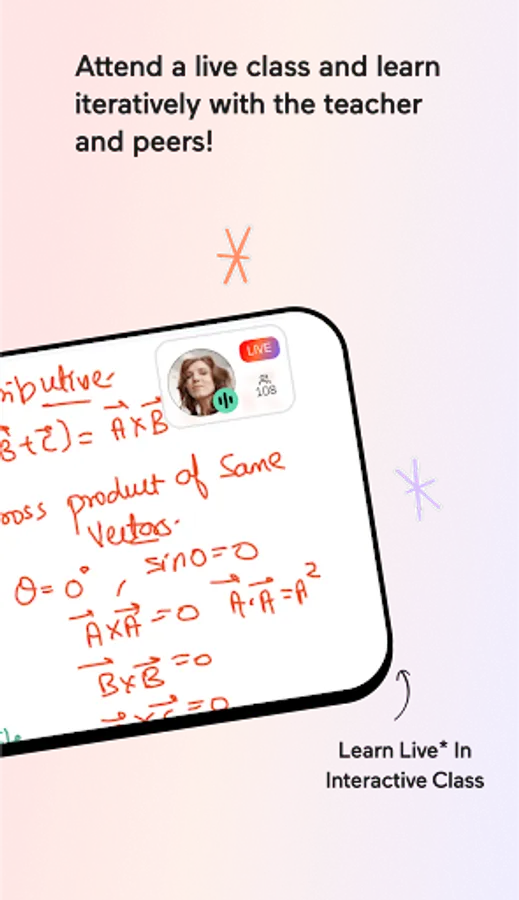 Attend a live class and learn
iteratively with the teacher
and peers!
LIVE
108
ributive
B+C) = A×B
ross product of Same
Vectors.
θ=0° , sin0=0
A×A=0 A·A=A²
B×B=0
=0
Learn Live* In
Interactive Class